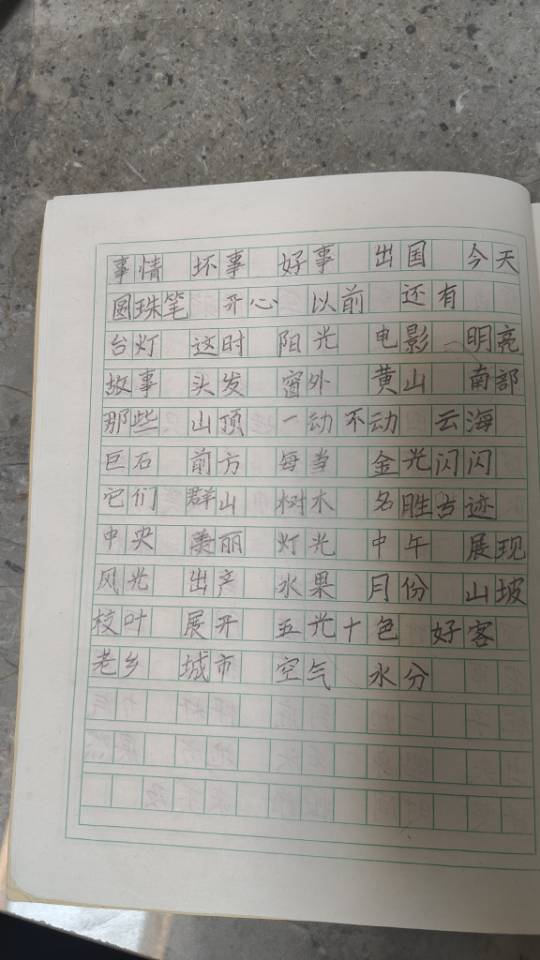 事情 坏事 好事 出国 今天
圆珠笔 开心 以前 还有
台灯 这时 阳光 电影 明亮
故事 头发 窗外 黄山 南部
那些 山顶 一动不动 云海
巨石 前方 每当 金光闪闪
它们 群山 树木 名胜古迹
中央 美丽 灯光 中午 展现
风光 出产 水果 月份 山坡
枝叶 展开 五光十色 好客
老乡 城市 空气 水分